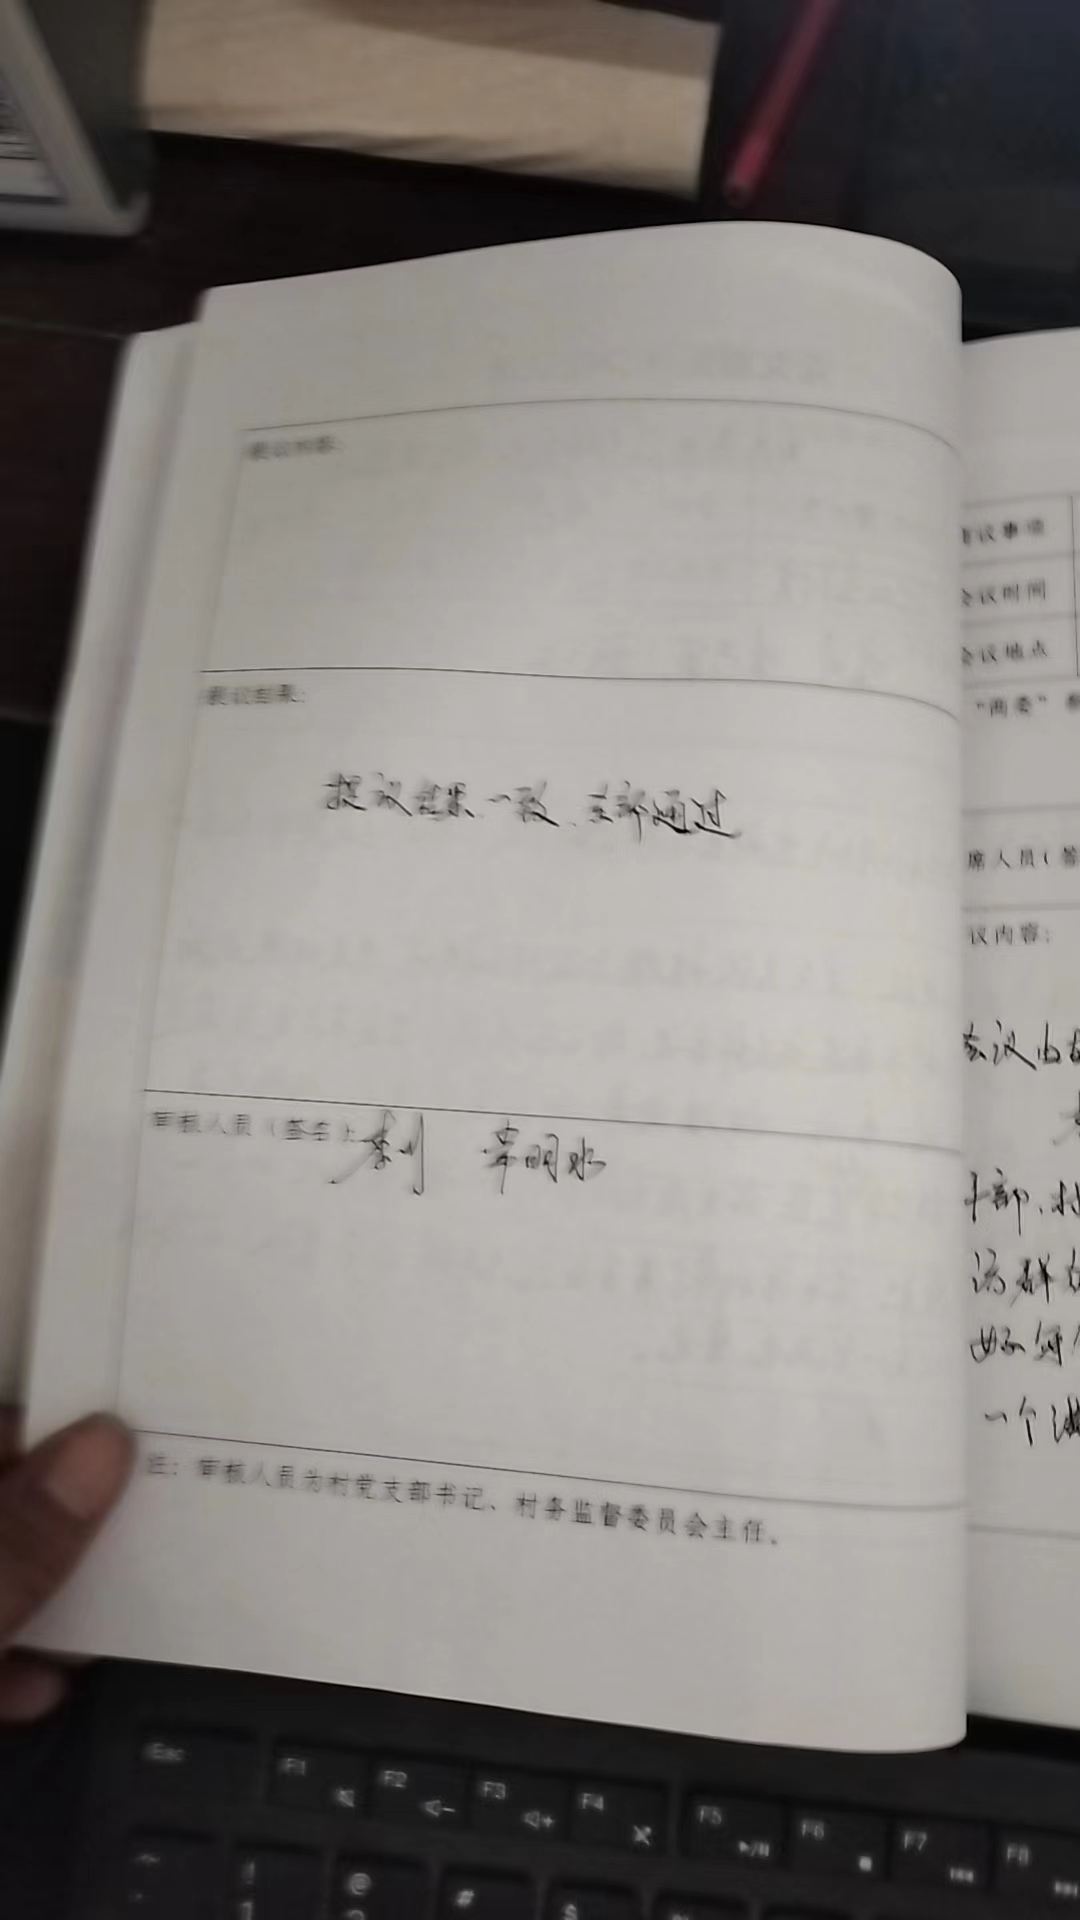 提议内容：
提议结果：
提议结果一致，全部通过
审核人员（签字）
李川 辛明水
注：审核人员为村党支部书记、村务监督委员会主任。
议事项
会议时间
会议地点
“两委”
席人员（签
议内容：
会议由
干部、村
活群
好何
一个
Esc F1 F2 F3 F4 F5 F6 F7 F8
! @ # $
1